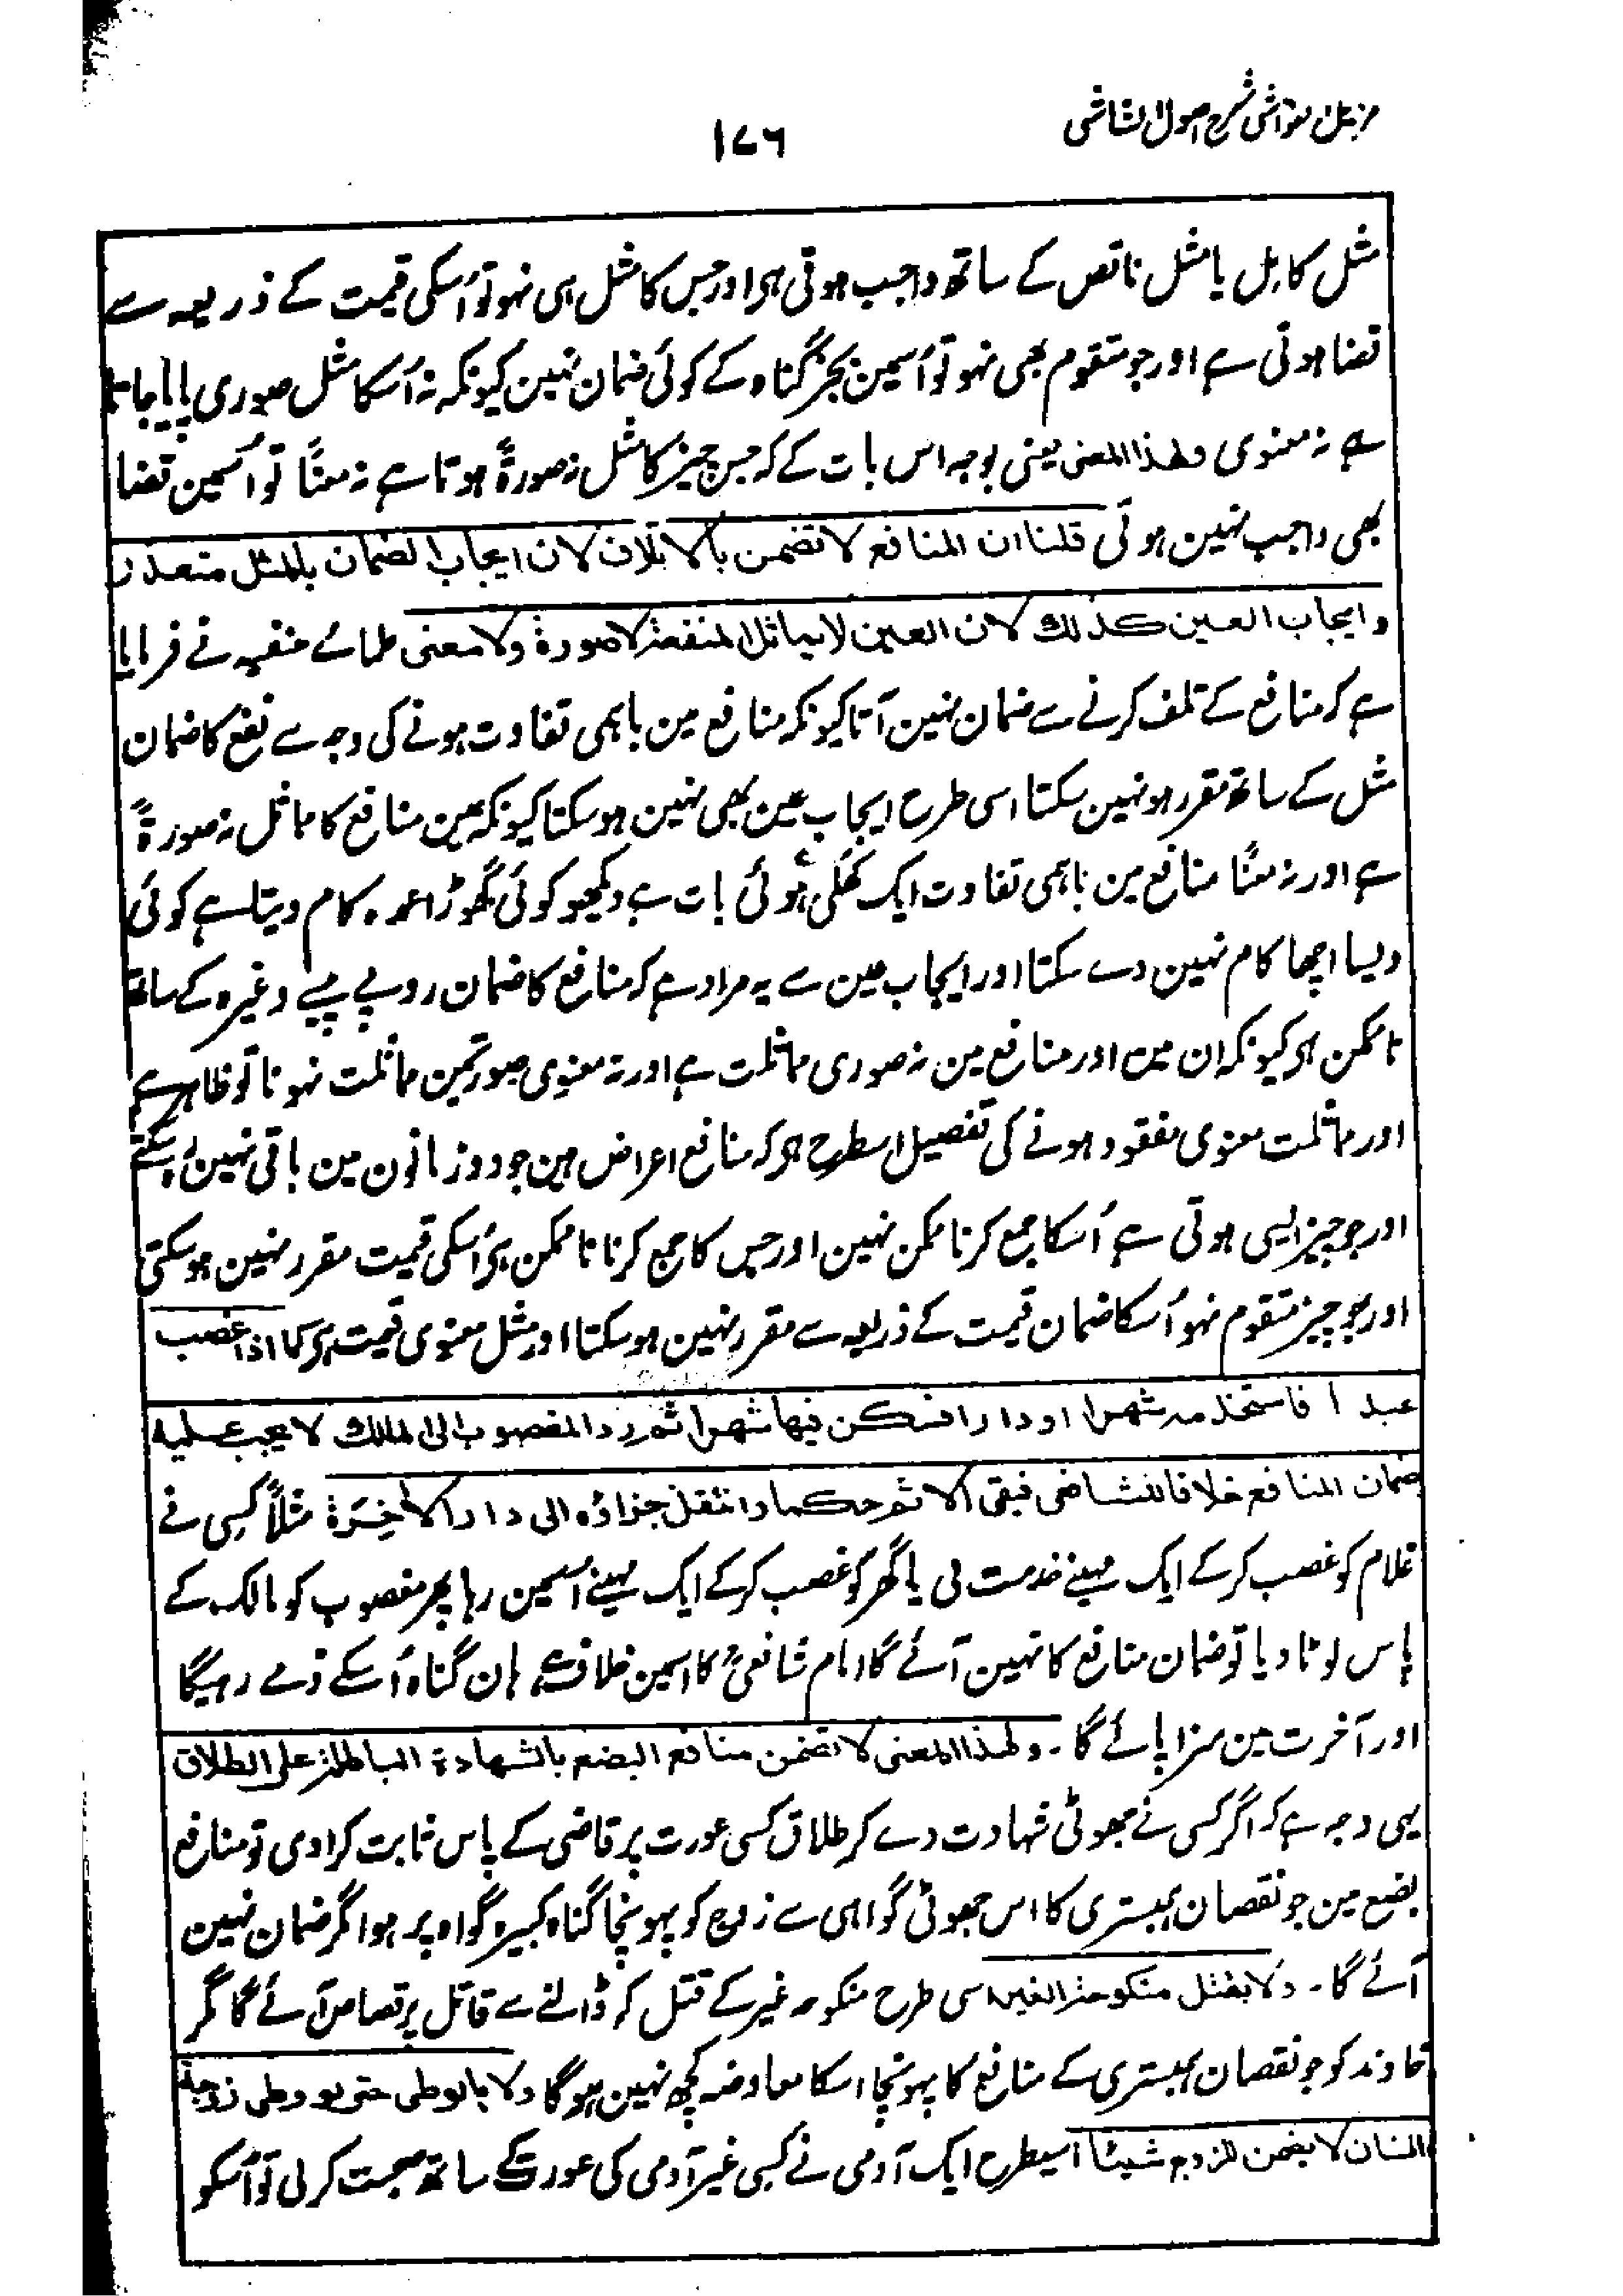 مزیل الغواشی شرح اصول الشاشی
۱۷۶
مثل کامل یا مثل ناقص کے ساتھ واجب ہوتی ہی اور جس کا مثل ہی نہو تو اُسکی قیمت کے ذریعہ سے
قضا ہوتی ہے اور جو متقوم بھی نہو تو اُسمین بجز گناہ کے کوئی ضمان نہین کیونکہ نہ اُسکا مثل صوری پایا جاتا
ہے نہ معنوی ولهذا المعنی یعنی بوجہ اس بات کے کہ جس چیز کا مثل نہ صورۃً ہوتا ہے نہ معنًا تو اُسمین قضا
بھی واجب نہین ہوتی قلنا ان المنافع لا تضمن بالاتلاف لان ایجاب الضمان بالمثل متعذر
وایجاب العین کذلك لان العین لا یماثل المنفعة لا صورة ولا معنی علمائے حنفیہ نے فرمایا
ہے کہ منافع کے تلف کرنے سے ضمان نہین آتا کیونکہ منافع مین باہمی تفاوت ہونے کی وجہ سے نفع کا ضمان
مثل کے ساتھ مقرر ہو نہین سکتا اسی طرح ایجاب عین بھی نہین ہو سکتا کیونکہ عین منافع کا مماثل نہ صورۃً
ہے اور نہ معنًا منافع مین باہمی تفاوت ایک کھلی ہُوئی بات ہے دیکھو کوئی گھوڑا عمدہ کام دیتا ہے کوئی
ویسا اچھا کام نہین دے سکتا اور ایجاب عین سے یہ مراد ہے کہ منافع کا ضمان روپے پیسے وغیرہ کے ساتھ
ناممکن ہی کیونکہ ان مین اور منافع مین نہ صوری مماثلت ہے اور نہ معنوی صورتمین مماثلت نہونا تو ظاہر ہے
اور مماثلت معنوی مفقود ہونے کی تفصیل اسطرح ہی کہ منافع اعراض ہین جو دو زمانون مین باقی نہین رہ سکتے
اور جو چیز ایسی ہوتی ہے اُسکا جمع کرنا ممکن نہین اور جس کا جمع کرنا ناممکن ہی اُسکی قیمت مقرر نہین ہو سکتی
اور جو چیز متقوم نہو اُسکا ضمان قیمت کے ذریعہ سے مقرر نہین ہو سکتا اور مثل معنوی قیمت ہی کما اذا غصب
عبدا فاستخدمه شهرا او دارا فسکن فیها شهرا ثم رد المغصوب الی المالك لا یجب علیه
ضمان المنافع خلافا للشافعی فبقی الاثم حکما وانتقل جزاؤه الی دار الاٰخرة مثلاً کسی نے
غلام کو غصب کر کے ایک مہینے خدمت لی یا گھر کو غصب کر کے ایک مہینے اُسمین رہا پھر مغصوب کو مالک کے
پاس لوٹا دیا تو ضمان منافع کا نہین آئے گا امام شافعیؒ کا اسمین خلاف ہے ہان گناہ اُسکے ذمے رہیگا
اور آخرت مین سزا پائے گا۔ ولهذا المعنی لا تضمن منافع البضع بالشهادة الباطلة علی الطلاق
یہی وجہ ہے کہ اگر کسی نے جھوٹی شہادت دے کر طلاق کسی عورت پر قاضی کے پاس ثابت کرا دی تو منافع
بضع مین جو نقصان ہمبستری کا اس جھوٹی گواہی سے زوج کو پہونچا گناہ کبیرہ گواہ پر ہوا مگر ضمان نہین
آئے گا۔ ولا بقتل منکوحة الغیر اسی طرح منکوحہ غیر کے قتل کر ڈالنے سے قاتل پر قصاص آئے گا مگر
خاوند کو جو نقصان ہمبستری کے منافع کا پہونچا اسکا معاوضہ کچھ نہین ہو گا ولا بالوطی حتی لو وطی زوجة
انسان لا یضمن للزوج شیئا اسیطرح ایک آدمی نے کسی غیر آدمی کی عورت کے ساتھ صحبت کر لی تو اُسکو